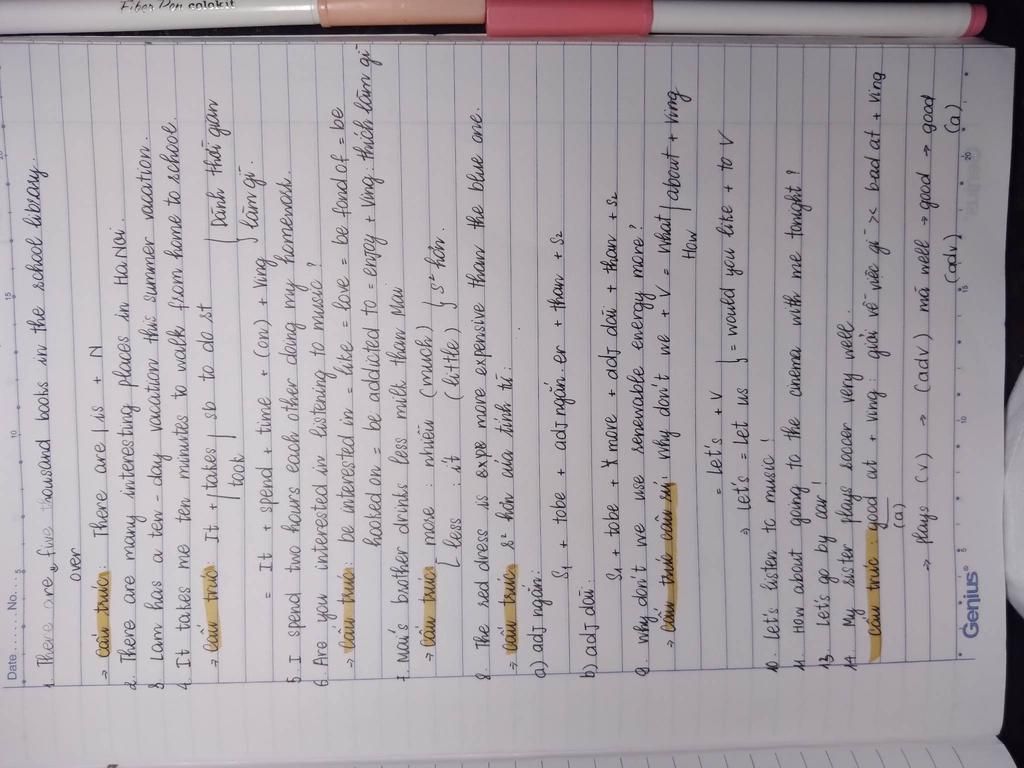 Fiber Pen colokit
Date ....... No. ...
1. There are five thousand books in the school library.
over
→ Cấu trúc: There are | us + N
2. There are many interesting places in Ha Noi.
3. Lam has a ten-day vacation this summer vacation.
4. It takes me ten minutes to walk from home to school.
→ Cấu trúc: It + | takes | sb to do st { Dành thời gian
took làm gì.
= It + spend + time + (on) + Ving
5. I spend two hours each other doing my homework.
6. Are you interested in listening to music?
→ Cấu trúc: be interested in = like = love = be fond of = be
hooked on = be addicted to = enjoy + Ving: thích làm gì
7. Mai's brother drinks less milk than Mai
→ Cấu trúc [ more : nhiều (much) } s² hơn.
less : ít (little)
8. The red dress is expe more expensive than the blue one.
→ Cấu trúc s² hơn của tính từ:
a) adj ngắn:
S1 + tobe + adj ngắn.er + than + S2
b) adj dài:
S1 + tobe + more + adj dài + than + S2
9. Why don't we use renewable energy more?
→ Cấu trúc câu : Why don't we + V = What | about + Ving
How
= Let's + V
→ Let's = Let us } = would you like + to V
10. Let's listen to music!
11. How about going to the cinema with me tonight?
13. Let's go by car!
14. My sister plays soccer very well.
Cấu trúc: good at + Ving: giỏi về việc gì >< bad at + Ving
(a)
→ plays (v) → (adv) mà well → good → good
(adv) (a)
Genius
5 10 15 20